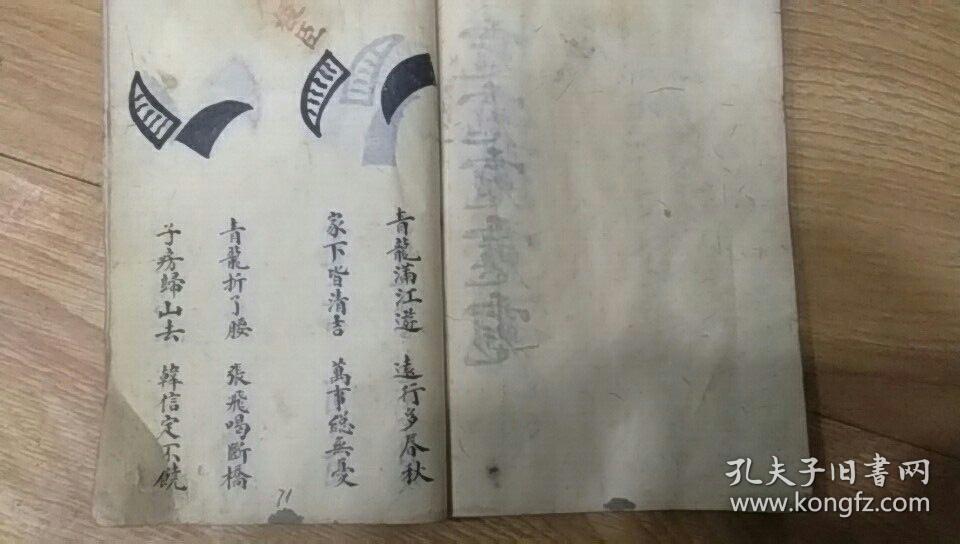 青龍滿江遊 遠行多春秋
家下皆清吉 萬事總無憂
青龍折了腰 張飛喝斷橋
子房歸山去 韓信定不饒
71
孔夫子旧書网
www.kongfz.com